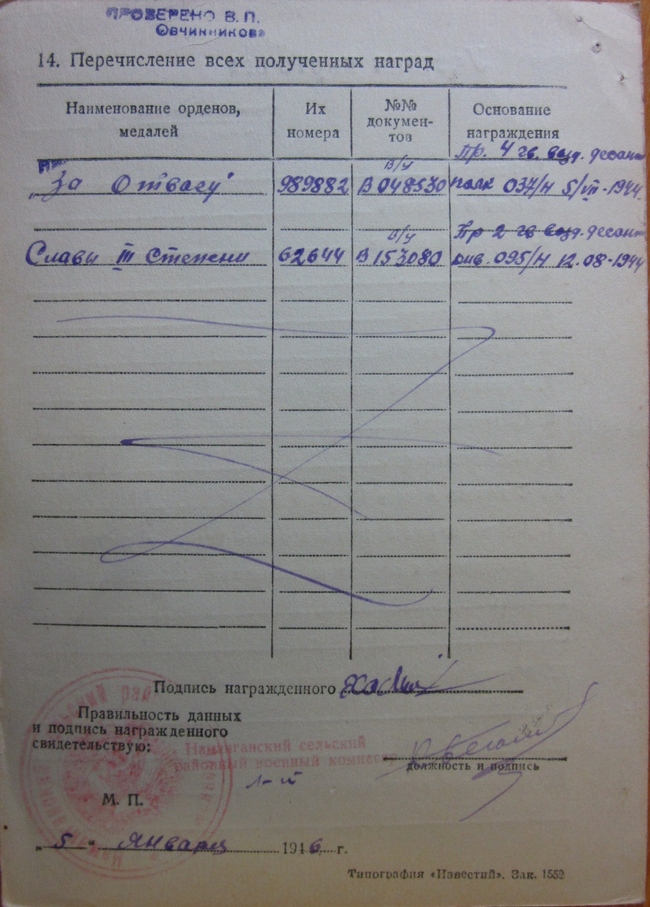 ПРОВЕРЕНО В. П.
Овчинникова
14. Перечисление всех полученных наград
Наименование орденов, медалей
Их номера
№№ докумен-тов
Основание награждения
в/у Пр. 4 гв. возд. десант
„За Отвагу" 989882 В 048530 полк 037/н 5/VII-1944
в/у Пр 2 гв возд. десант
Славы III Степени 62644 В 153080 див. 095/н 12.08-1944
Подпись награжденного
Правильность данных
и подпись награжденного
свидетельствую:
Наманганский сельский
районный военный комиссар
должность и подпись
М. П.
„5" Января 1946 г.
Типография «Известий». Зак. 1552